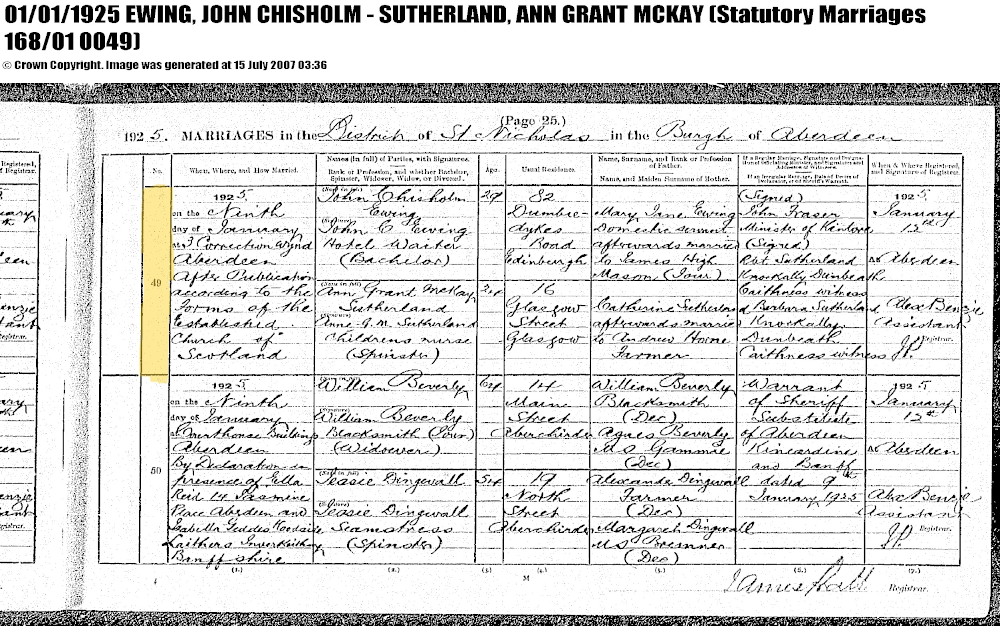 01/01/1925 EWING, JOHN CHISHOLM - SUTHERLAND, ANN GRANT MCKAY (Statutory Marriages
168/01 0049)
© Crown Copyright. Image was generated at 15 July 2007 03:36
(Page 25.)
1925. MARRIAGES in the District of St Nicholas in the Burgh of Aberdeen
No.
When, Where, and How Married.
Names (in full) of Parties, with Signatures.
Rank or Profession, and whether Bachelor,
Spinster, Widower, Widow, or Divorced.
Age.
Usual Residence.
Name, Surname, and Rank or Profession
of Father.
Name, and Maiden Surname of Mother.
When & Where Registered,
and Signature of Registrar.
49
1925.
on the Ninth
day of January
at 3 Correction Wynd
Aberdeen
After Publication
according to the
Forms of the
Established
Church of
Scotland
John Chisholm
Ewing
John C Ewing
Hotel Waiter
(Bachelor)
29
82
Dumbie-
dykes
Road
Edinburgh
Mary Jane Ewing
Domestic servant
afterwards married
to James High
Mason (Jour)
(Signed)
John Fraser
Minister of Kinlore
(Signed)
Robt Sutherland
Knockally Dunbeath
Caithness witness
Barbara Sutherland
Knockally
Dunbeath
Caithness witness
1925
January
12th
At Aberdeen
Alex Benzie
Assistant
Registrar.
Ann Grant McKay
Sutherland
Anne G. M. Sutherland
Childrens nurse
(Spinster)
24
16
Glasgow
Street
Glasgow
Catherine Sutherland
afterwards married
to Andrew Horne
Farmer
50
1925
on the Ninth
day of January
at Courthouse Buildings
Aberdeen
By Declaration in
presence of Ella
Reid 14 Jasmine
Place Aberdeen and
Isabella Geddes
Laithers Inverkeithny
Banffshire
William Beverly
William Beverly
Blacksmith (Jour)
(Widower)
64
14
Main
Street
Aberchirder
William Beverly
Blacksmith
(Dec)
Agnes Beverly
M.S Gammie
(Dec)
Warrant
of Sheriff
Substitute
of Aberdeen
Kincardine
and Banff
dated 9th
January 1925
1925
January
12th
At Aberdeen
Alex Benzie
Assistant
Registrar.
Jessie Dingwall
Jessie Dingwall
Seamstress
(Spinster)
54
19
North
Street
Aberchirder
Alexander Dingwall
Farmer
(Dec)
Margaret Dingwall
M.S Bremner
(Dec)
(1.)
(2.)
(3.)
(4.)
(5.)
(6.)
(7.)
M
James Hall
Registrar.